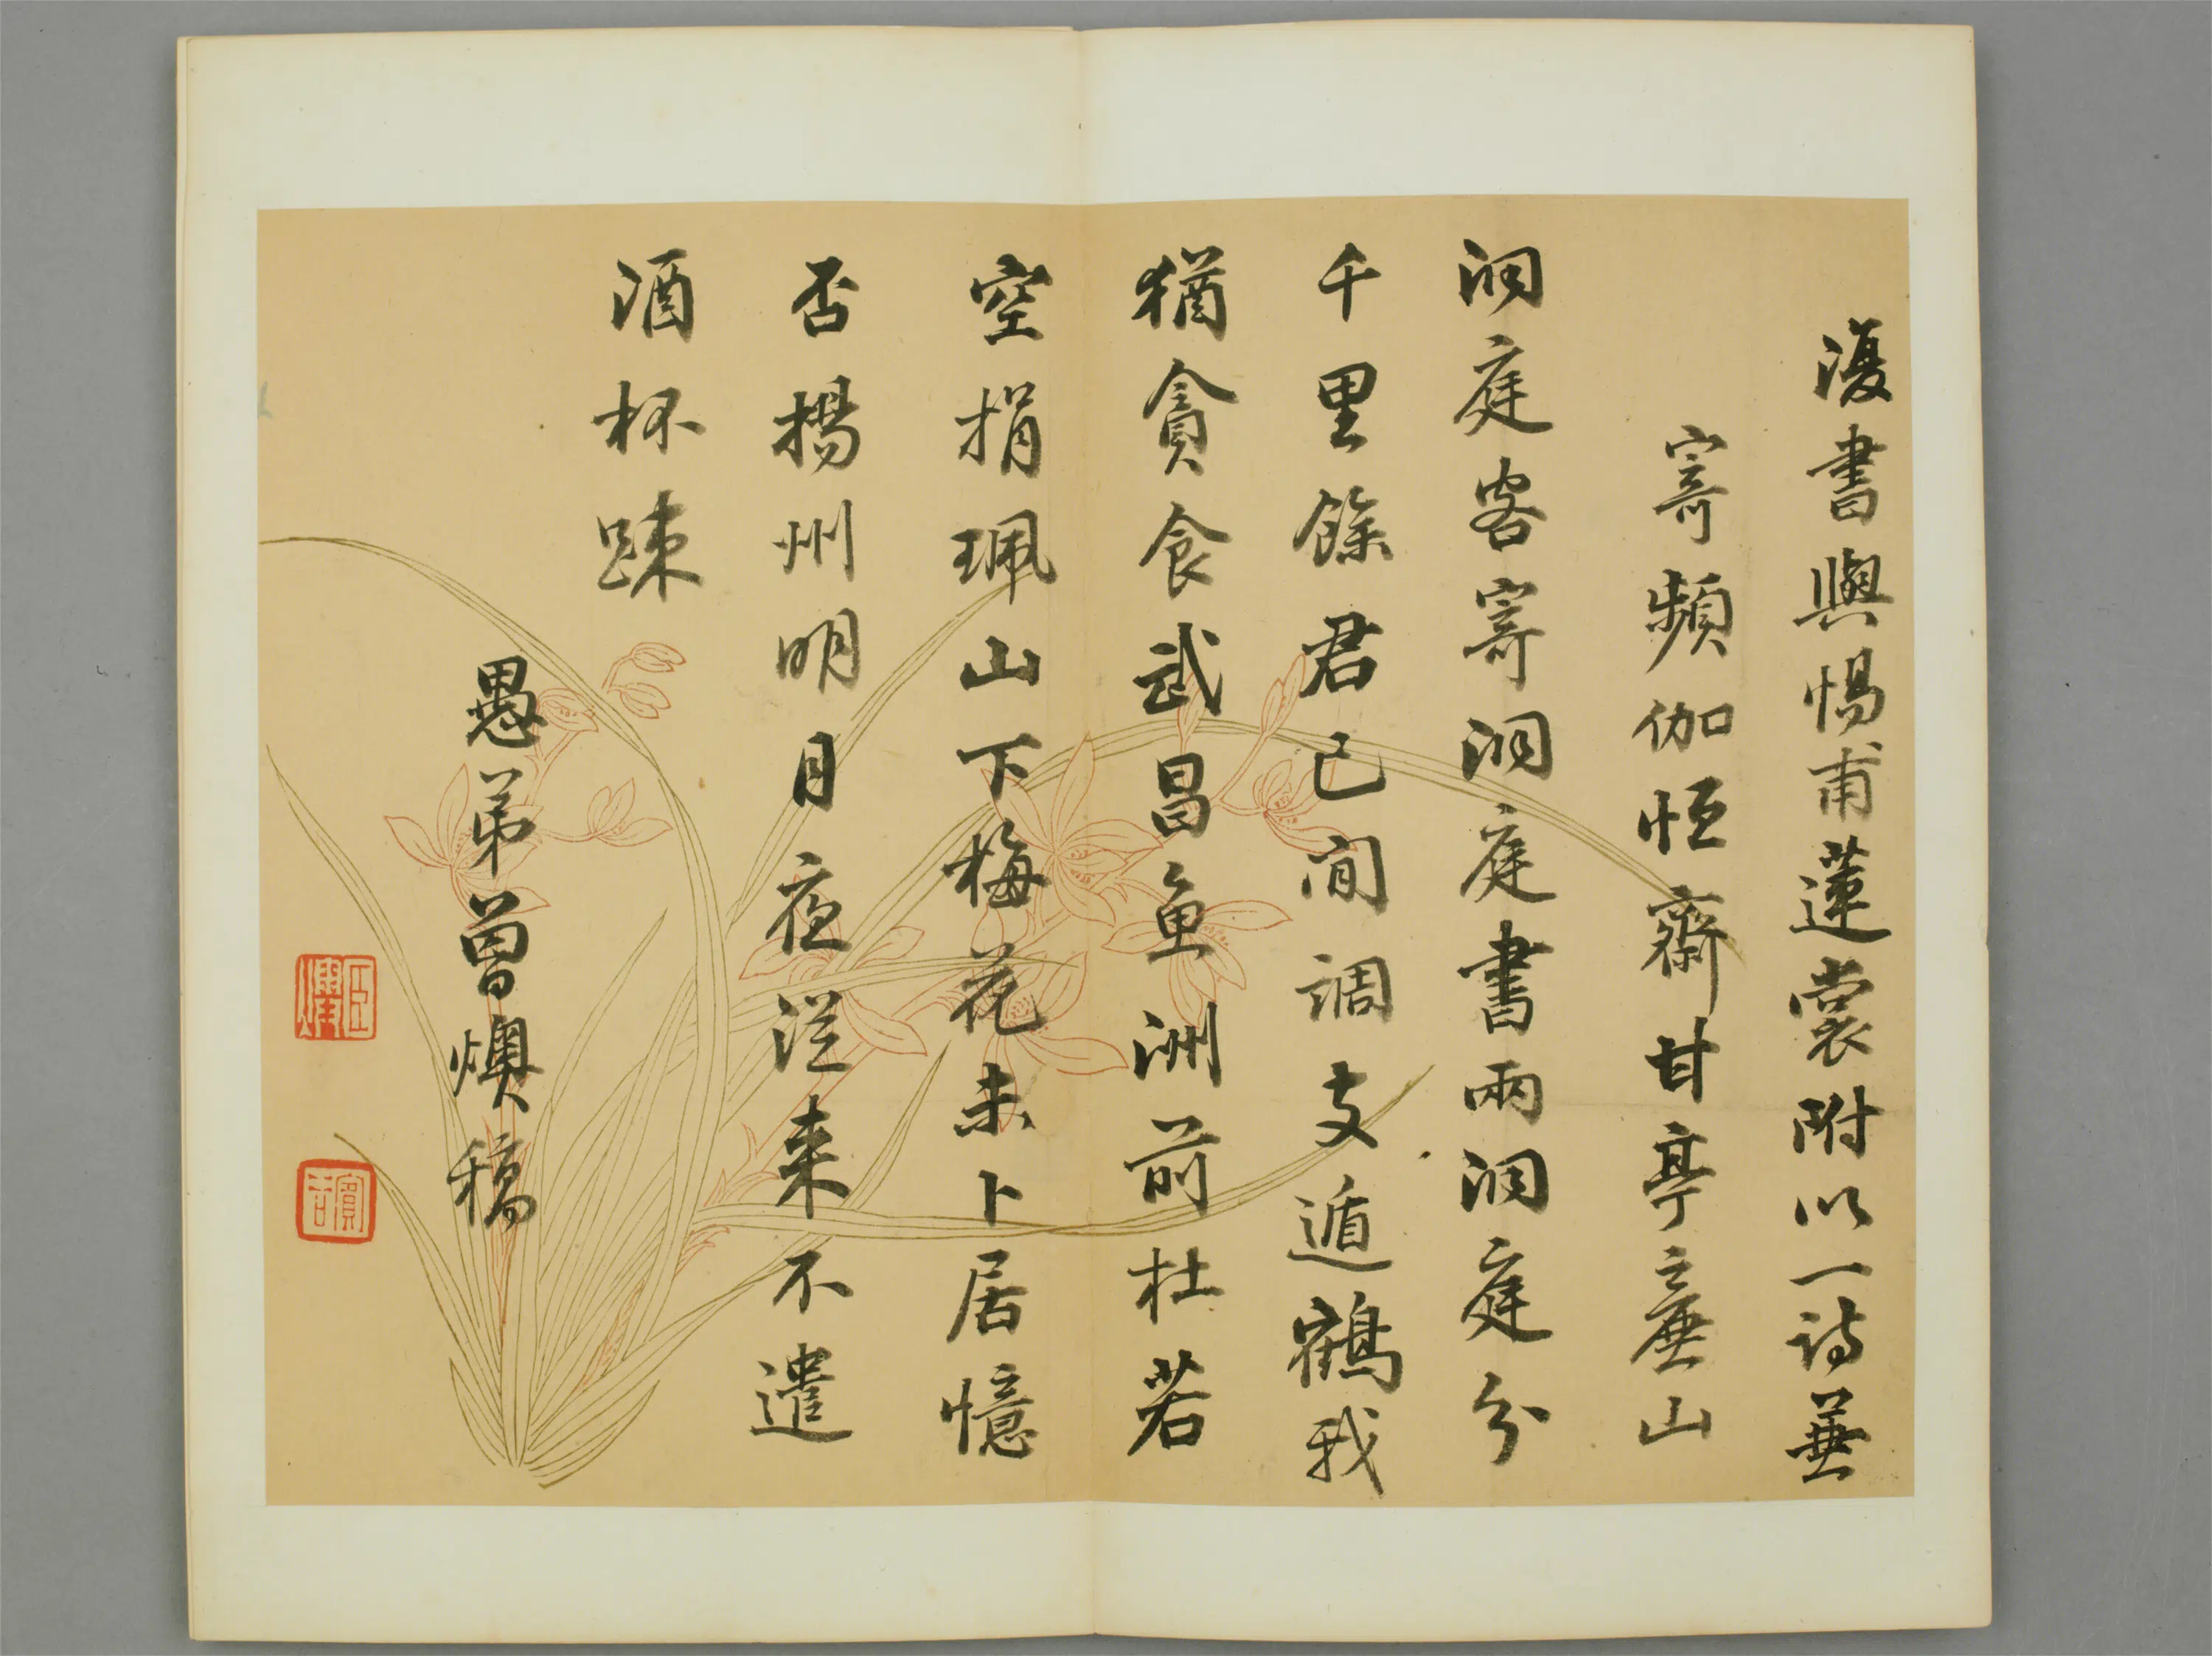 復書與惕甫蓮裳附以一詩兼
寄頻伽恒齋甘亭亷山
洞庭客寄洞庭書兩洞庭分
千里餘君已閒調支遁鶴我
猶貪食武昌魚洲前杜若
空捐珮山下梅花未卜居憶
否揚州明月夜從來不遣
酒杯踈
愚弟曾燠稿
臣燠
賓谷